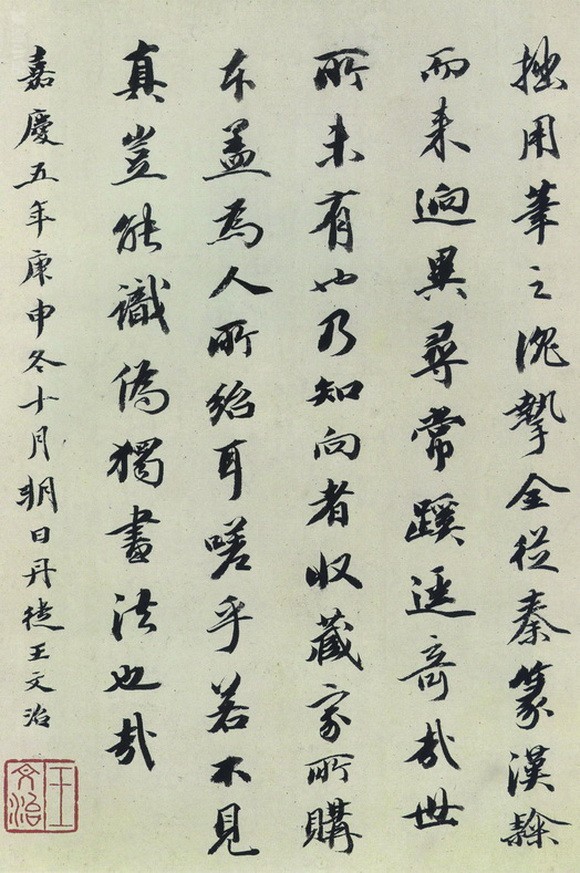 拙用筆之沈摯全從秦篆漢隸
而來迥異尋常蹊逕奇哉世
所未有也乃知向者收藏家所購
本蓋為人所紿耳嗟乎若不見
真豈能識偽獨畫法也哉
嘉慶五年庚申冬十月朔日丹徒王文治
王文治